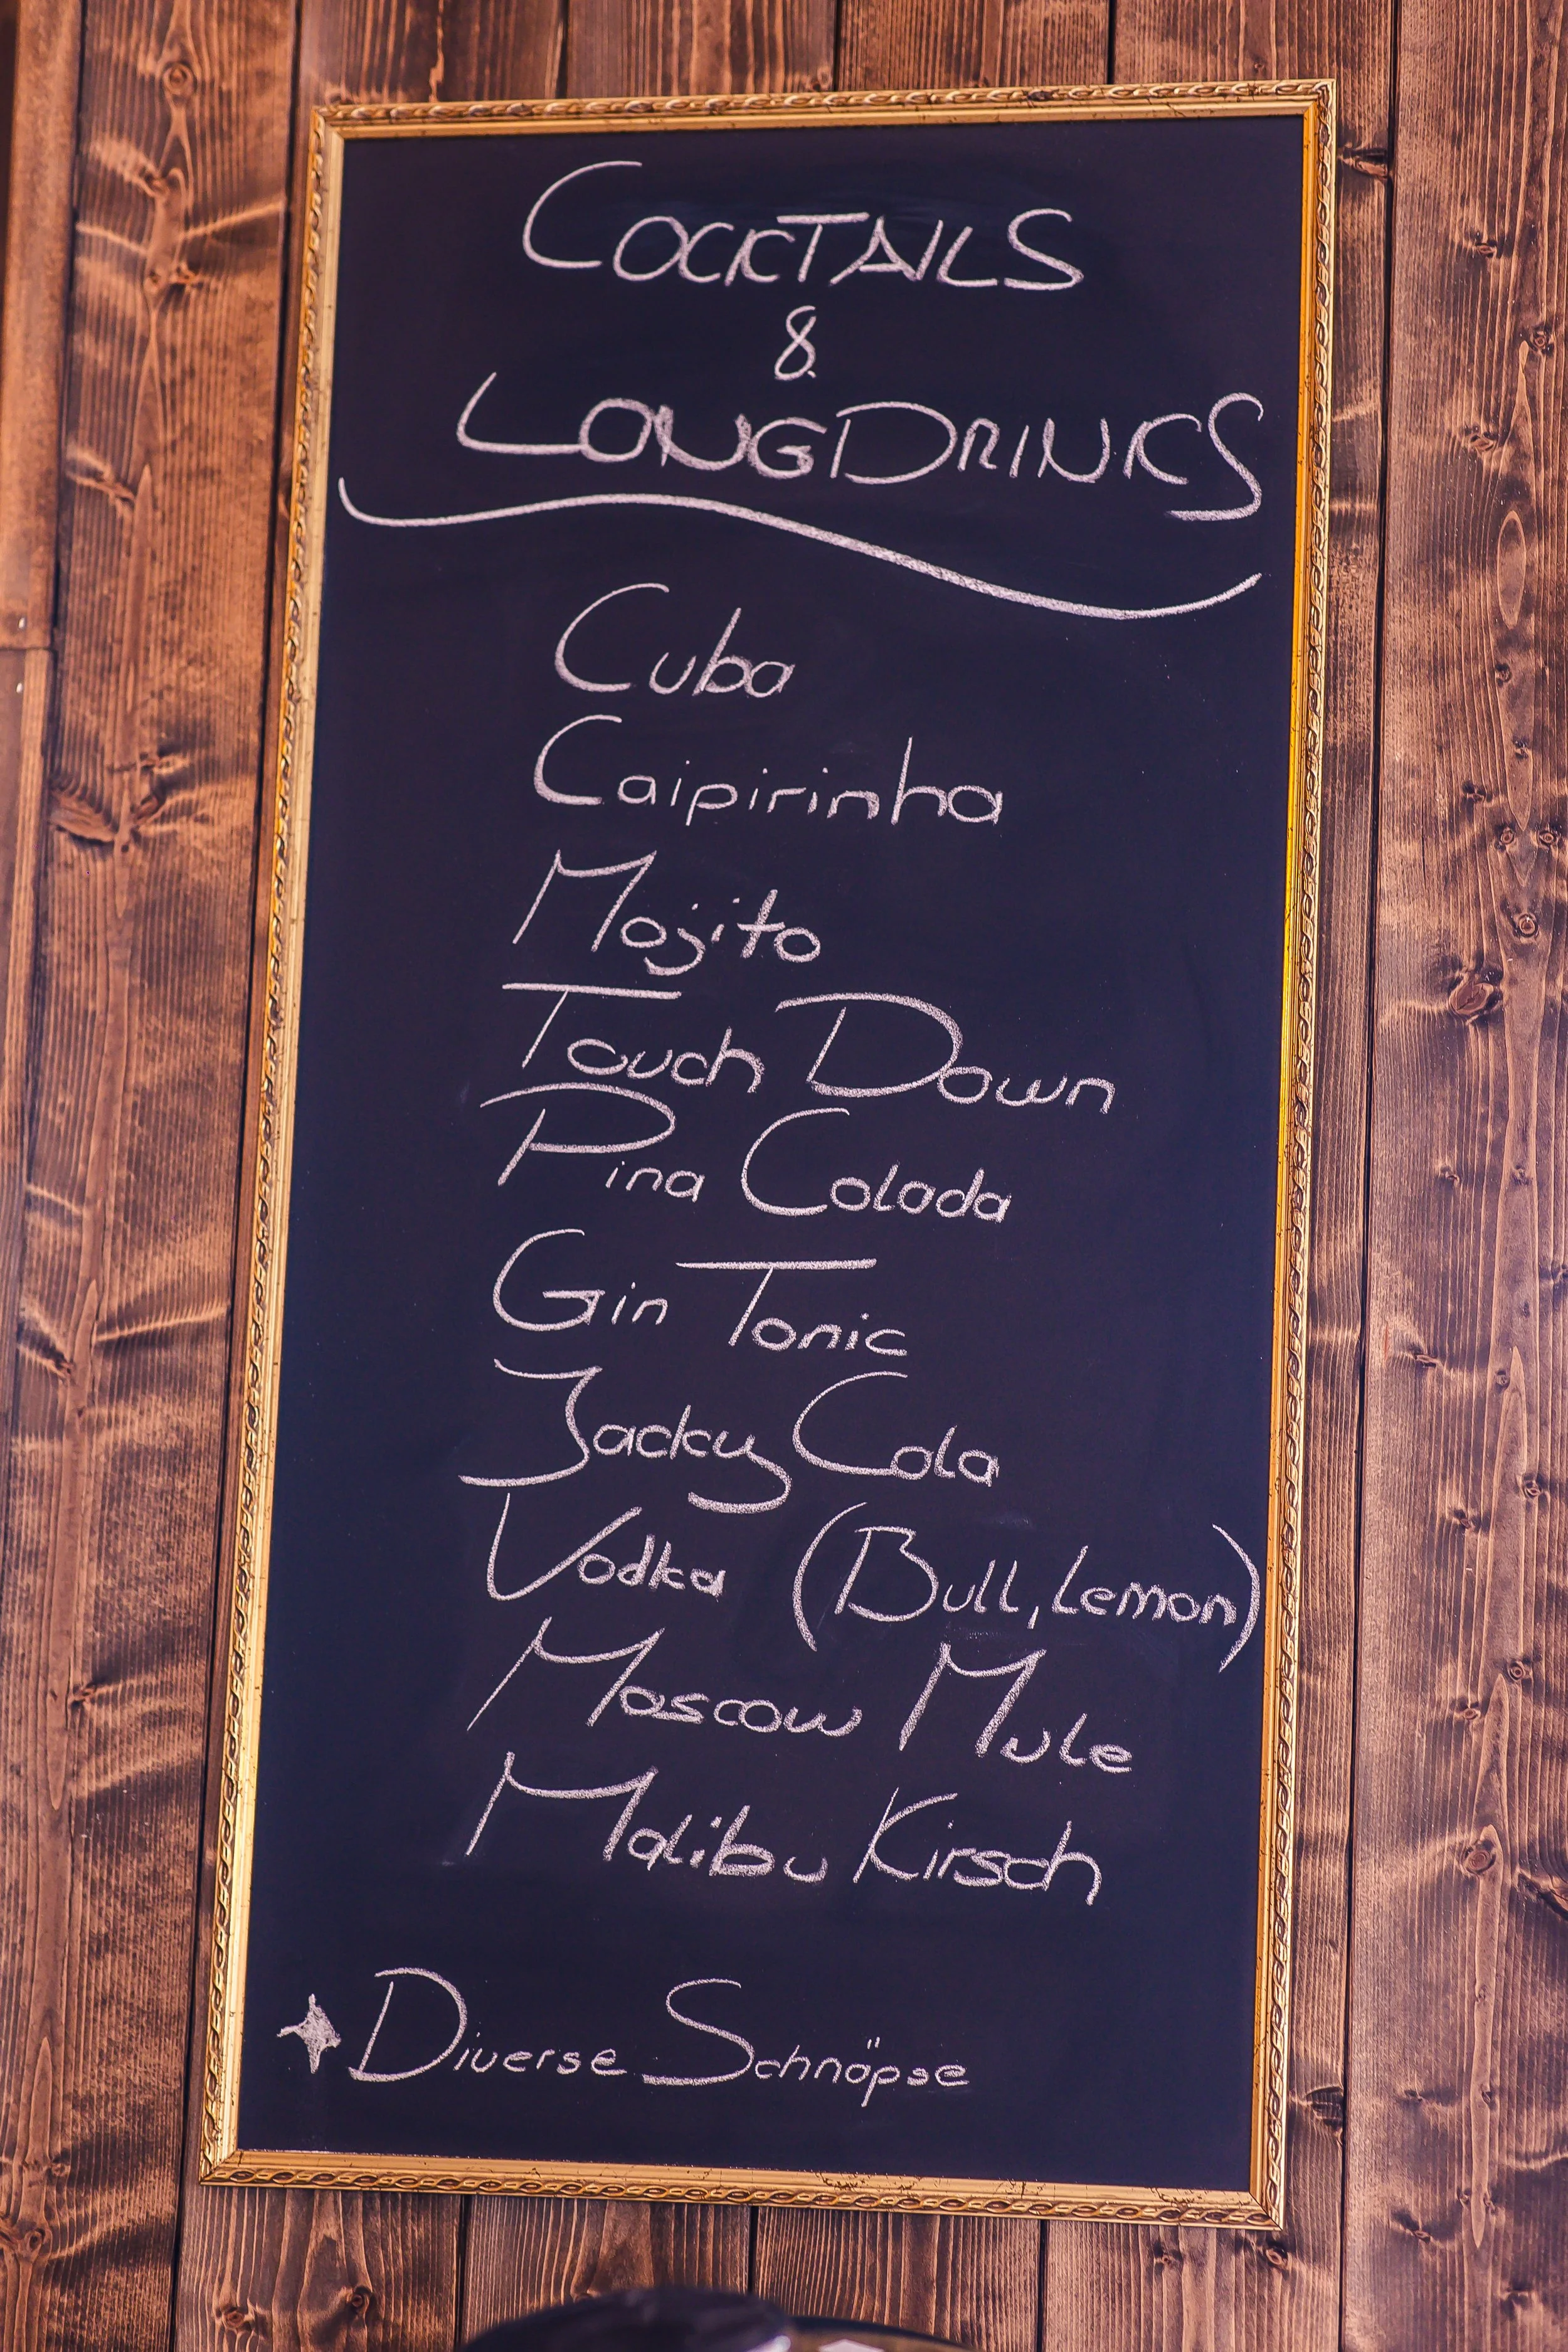 COCKTAILS
&
LONGDRINKS
Cuba
Caipirinha
Mojito
Touch Down
Pina Colada
Gin Tonic
Jacky Cola
Vodka (Bull, Lemon)
Moscow Mule
Malibu Kirsch
Diverse Schnäpse